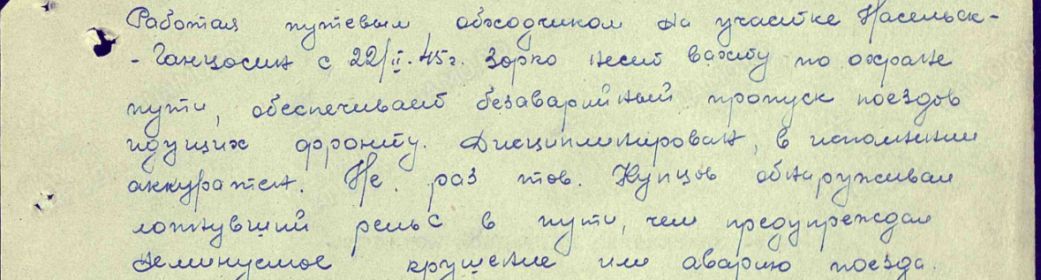 Работая путевым обходчиком на участке Насельск-
- Ганцоцин с 22/II-45г. зорко несет вахту по охране
пути, обеспечивает безаварийный пропуск поездов
идущих фронту. Дисциплинирован, в исполнении
аккуратен. Не раз тов. Купцов обнаруживал
лопнувший рельс в пути, чем предупреждал
неминуемое крушение или аварию поезда.